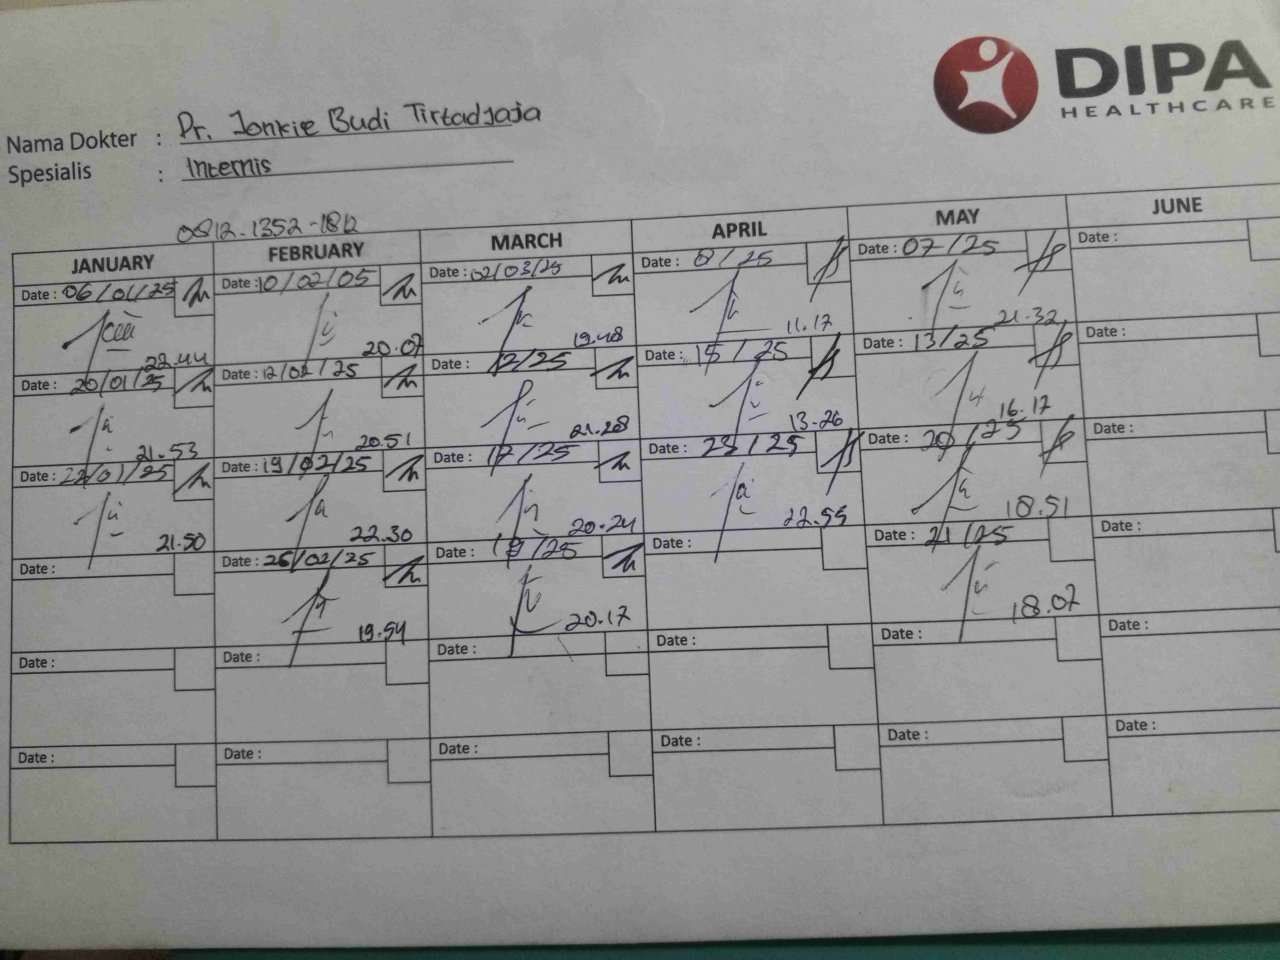 DIPA
HEALTHCARE
Nama Dokter : Dr. Jonkie Budi Tirtadjaja
Spesialis : Internis
0812-1352-1812
JANUARY FEBRUARY MARCH APRIL MAY JUNE
Date : 06/01/25 Date : 10/02/05 Date : 02/03/25 Date : 8/25 Date : 07/25 Date :
22.44 20.07 19.48 11.17 21.32
Date : 20/01/25 Date : 12/02/25 Date : 12/25 Date : 15/25 Date : 13/25 Date :
21.53 20.51 21.28 13-26 16.17
Date : 22/01/25 Date : 19/02/25 Date : 17/25 Date : 23/25 Date : 20/25 Date :
21.50 22.30 20.24 22.55 18.51
Date : Date : 26/02/25 Date : 19/25 Date : Date : 21/25 Date :
19.54 20.17 18.07
Date : Date : Date : Date : Date : Date :
Date : Date : Date : Date : Date : Date :